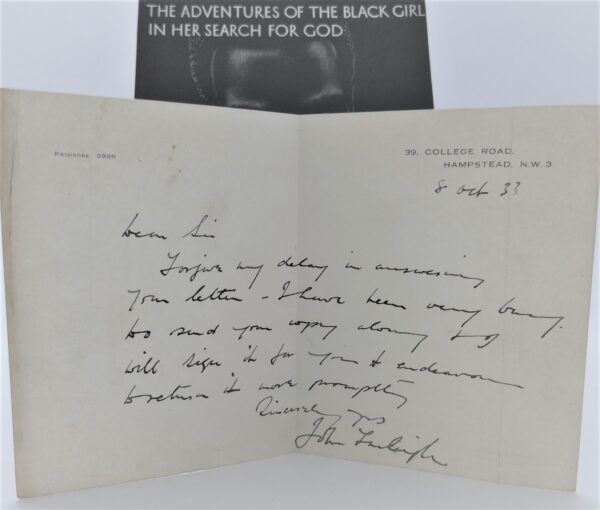 THE ADVENTURES OF THE BLACK GIRL
IN HER SEARCH FOR GOD
PRIMROSE 3905
39, COLLEGE ROAD,
HAMPSTEAD, N.W. 3.
8 Oct 33
Dear Sir
Forgive my delay in answering
your letter - I have been very busy.
Do send your copy along & I
will sign it for you & endeavour
to return it more promptly
Sincerely yrs
John Farleigh